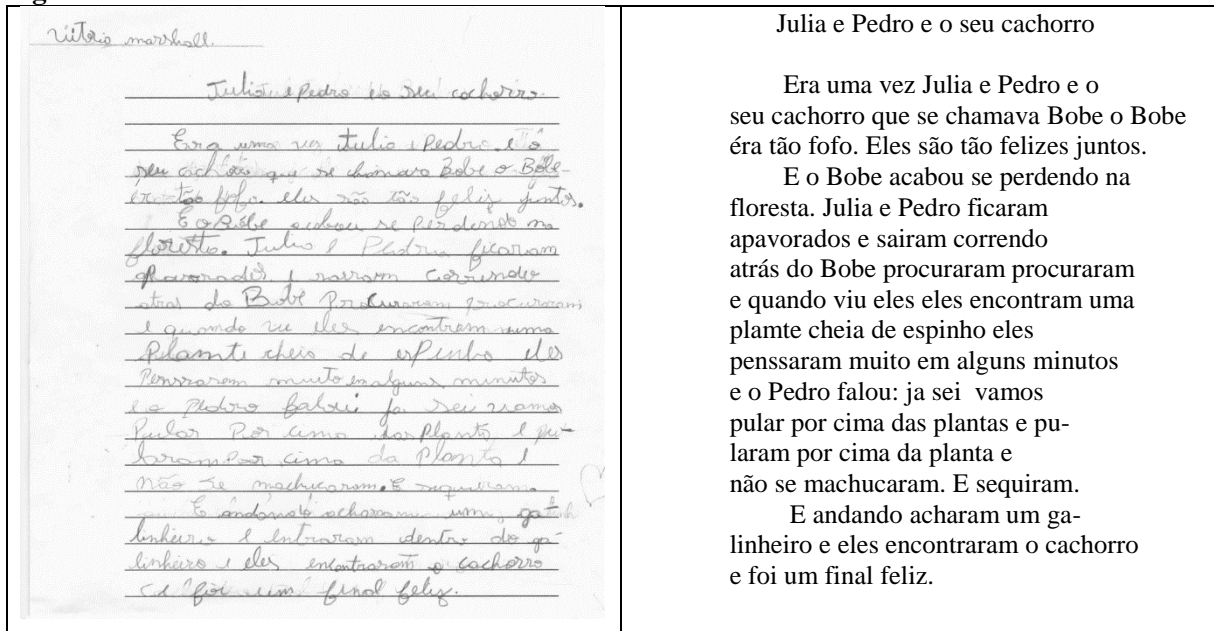 marshall.
Julia e Pedro e o seu cachorro.
Era uma vez Julia e Pedro e o
seu cachorro que se chamava Bobe o Bobe
éra tão fofo. eles são tão feliz juntos.
E o Bobe acabou se perdendo na
floresta. Julia e Pedro ficaram
apavorados e sairam correndo
atras do Bobe Procuraram procuraram
e quando viu eles encontram uma
Plamte cheia de esPinho eles
Penssaram muito em alguns minutos
e o Pedro falou: ja sei vamos
Pular Por cima das Planta e pu-
laram Por cima da Planta e
não se machucaram. E sequiram.
E andando acharam um ga-
linheiro e entraram dentro do ga-
linheiro e eles encontraram o cachorro
e foi um final feliz.
Julia e Pedro e o seu cachorro
Era uma vez Julia e Pedro e o
seu cachorro que se chamava Bobe o Bobe
éra tão fofo. Eles são tão felizes juntos.
E o Bobe acabou se perdendo na
floresta. Julia e Pedro ficaram
apavorados e sairam correndo
atrás do Bobe procuraram procuraram
e quando viu eles eles encontram uma
plamte cheia de espinho eles
penssaram muito em alguns minutos
e o Pedro falou: ja sei vamos
pular por cima das plantas e pu-
laram por cima da planta e
não se machucaram. E sequiram.
E andando acharam um ga-
linheiro e eles encontraram o cachorro
e foi um final feliz.